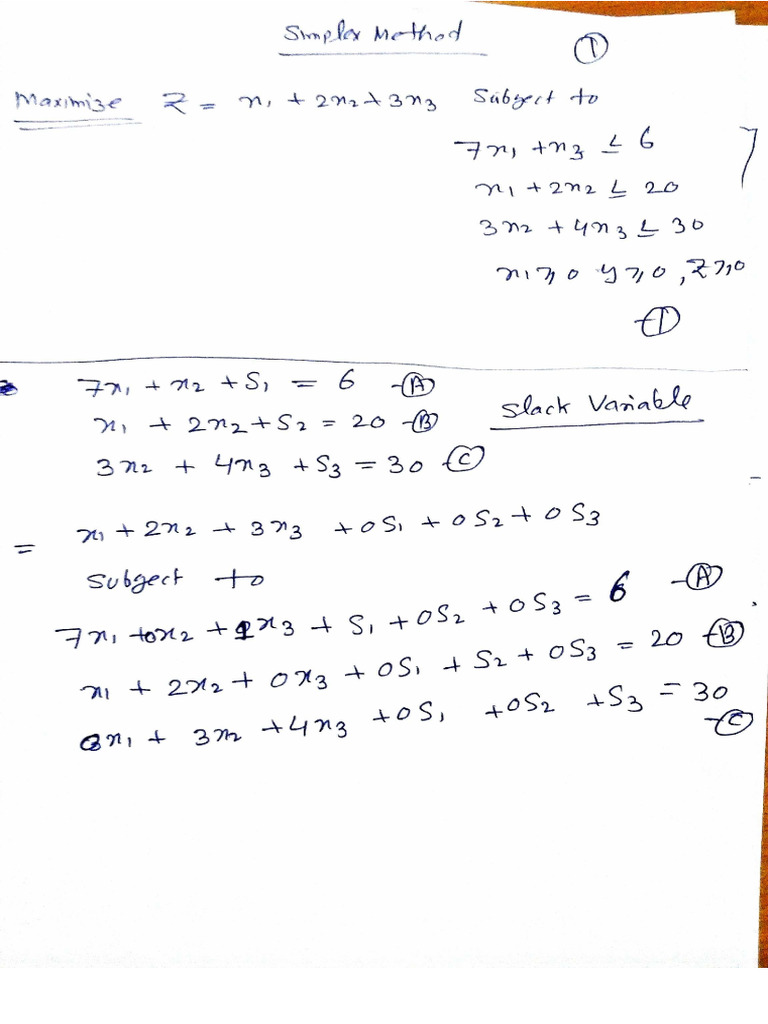 Simplex Method
①
Maximize Z = x₁ + 2x₂ + 3x₃ Subject to
7x₁ + x₃ ≤ 6
x₁ + 2x₂ ≤ 20
3x₂ + 4x₃ ≤ 30
x₁ ≥ 0 y ≥ 0, Z ≥ 0
-①
7x₁ + x₂ + S₁ = 6 -Ⓐ
x₁ + 2x₂ + S₂ = 20 -Ⓑ
Slack Variable
3x₂ + 4x₃ + S₃ = 30 -Ⓒ
= x₁ + 2x₂ + 3x₃ + 0S₁ + 0S₂ + 0S₃
Subject to
7x₁ + 0x₂ + 1x₃ + S₁ + 0S₂ + 0S₃ = 6 -Ⓐ
x₁ + 2x₂ + 0x₃ + 0S₁ + S₂ + 0S₃ = 20 -Ⓑ
0x₁ + 3x₂ + 4x₃ + 0S₁ + 0S₂ + S₃ = 30
-Ⓒ